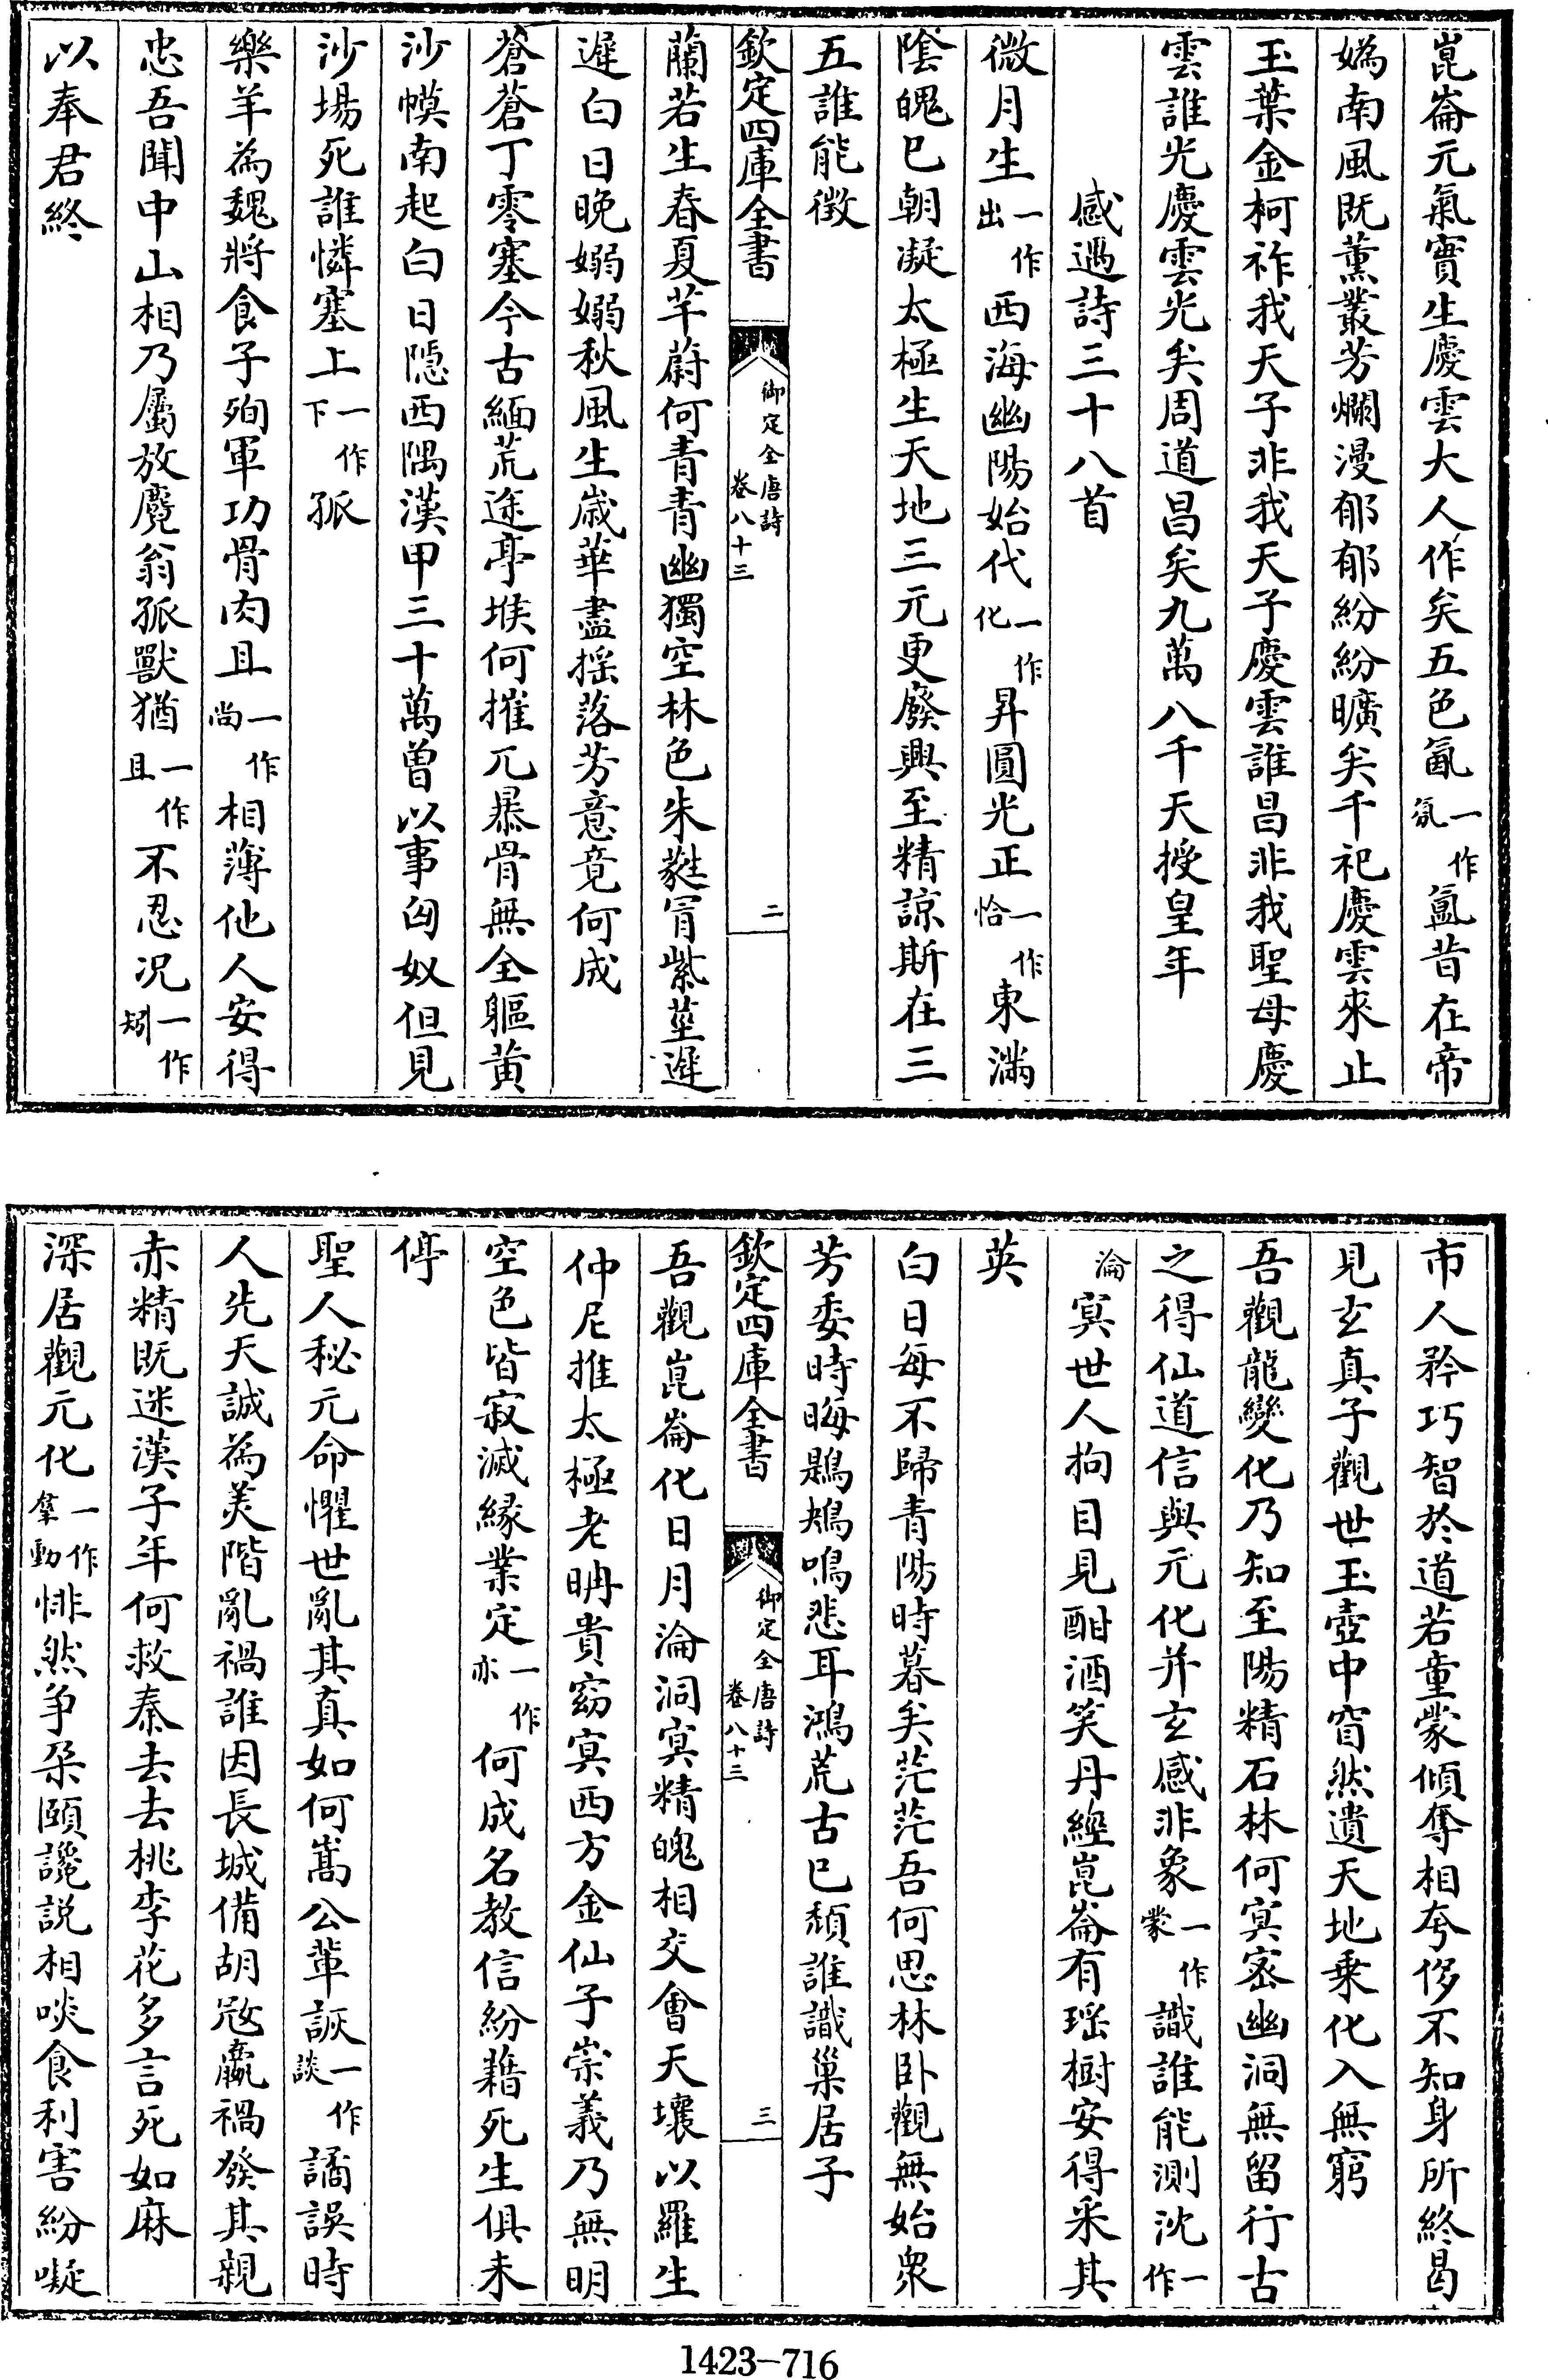 崑崙元氣實生慶雲大人作矣五色氤一作氛氲昔在帝
媯南風既薫叢芳爛漫郁郁紛紛曠矣千祀慶雲來止
玉葉金柯祚我天子非我天子慶雲誰昌非我聖母慶
雲誰光慶雲光矣周道昌矣九萬八千天授皇年
感遇詩三十八首
微月生一作出西海幽陽始代一作化昇圓光正一作恰東滿
陰魄已朝凝太極生天地三元更廢興至精諒斯在三
五誰能徴
欽定四庫全書 御定全唐詩 卷八十三 二
蘭若生春夏芊蔚何青青幽獨空林色朱蕤冐紫莖遲
遲白日晚嫋嫋秋風生歳華盡揺落芳意竟何成
蒼蒼丁零塞今古緬荒途亭堠何摧兀暴骨無全軀黄
沙幙南起白日隠西隅漢甲三十萬曽以事匈奴但見
沙塲死誰憐塞上一作下孤
樂羊為魏將食子殉軍功骨肉且一作尚相薄他人安得
忠吾聞中山相乃屬放麑翁孤獸猶一作且不忍况一作矧
以奉君終
市人矜巧智於道若童蒙傾奪相夸侈不知身所終曷
見玄真子觀世玉壺中窅然遺天地乗化入無窮
吾觀龍變化乃知至陽精石林何㝠宻幽洞無留行古
之得仙道信與元化并玄感非象一作蒙識誰能測沈一作
淪㝠世人拘目見酣酒笑丹經崑崙有瑶樹安得采其
英
白日每不歸青陽時暮矣茫茫吾何思林卧觀無始衆
芳委時晦鶗鴂鳴悲耳鴻荒古已頽誰識巢居子
欽定四庫全書 御定全唐詩 卷八十三 三
吾觀崑崙化日月淪洞㝠精魄相交會天壤以羅生
仲尼推太極老𣆀貴窈㝠西方金仙子崇義乃無明
空色皆寂滅縁業定一作亦何成名教信紛藉死生俱未
停
聖人秘元命懼世亂其真如何嵩公輩詼一作談譎誤時
人先天誠為美階亂禍誰因長城備胡宼嬴禍發其親
赤精既迷漢子年何救秦去去桃李花多言死如麻
深居觀元化一作羣動悱然争朶頤讒説相啖食利害紛㘈
1423-716